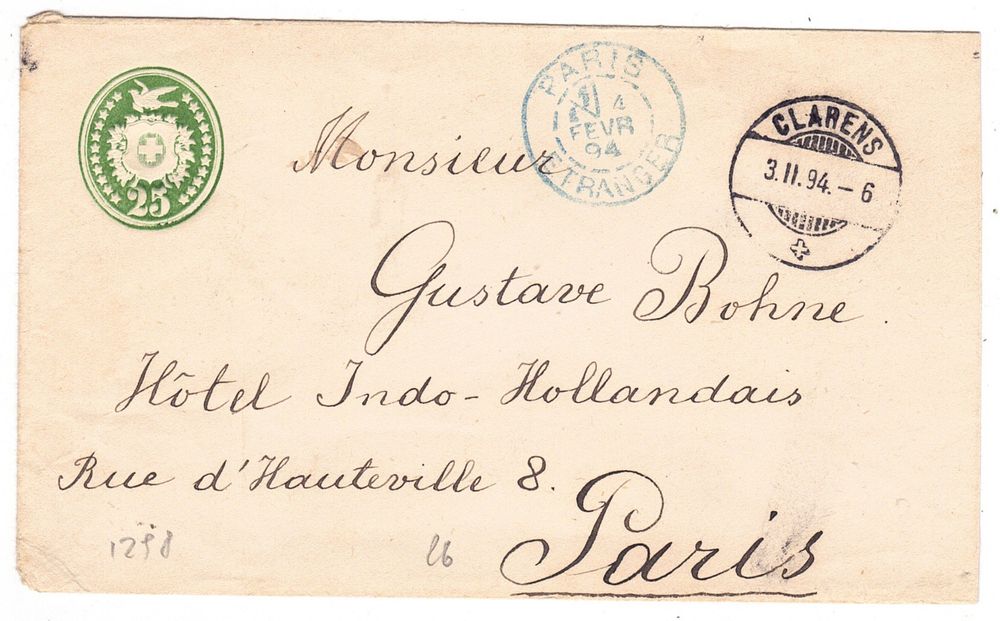 25
PARIS
4
FEVR
94
ETRANGER
CLARENS
3.II.94.-6
Monsieur
Gustave Bohne.
Hôtel Indo-Hollandais
Rue d'Hauteville 8.
Paris
1298
26